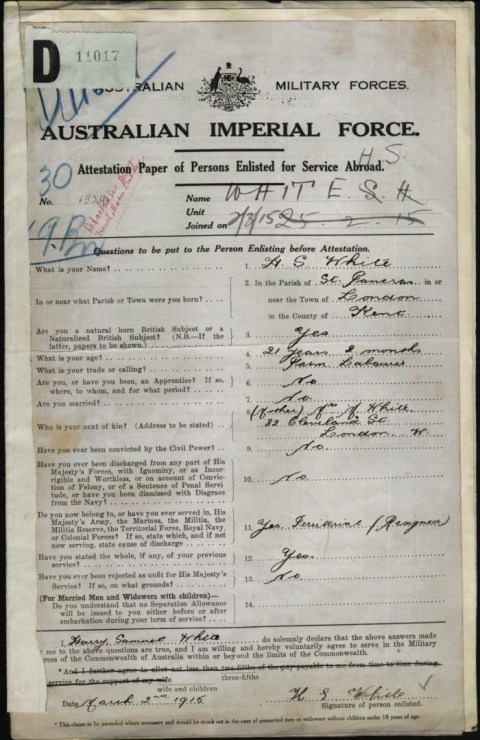 D 11017
AUSTRALIAN MILITARY FORCES.
AUSTRALIAN IMPERIAL FORCE.
Attestation Paper of Persons Enlisted for Service Abroad.
H. S.
30
No.
Name WHITE S H
Unit
Joined on 2/3/15 25-2-15
Questions to be put to the Person Enlisting before Attestation.
What is your Name? 1. H S White
In or near what Parish or Town were you born? 2. In the Parish of St. Pancras in or
near the Town of London
in the County of Kent
Are you a natural born British Subject or a
Naturalized British Subject? (N.B.—If the
latter, papers to be shown.) 3. Yes
What is your age? 4. 21 years 8 months
What is your trade or calling? 5. Farm Labourer
Are you, or have you been, an Apprentice? If so,
where, to whom, and for what period? 6. No
Are you married? 7. No
Who is your next of kin? (Address to be stated) 8. (Father) Mr White
82 Cleveland St
London W
Have you ever been convicted by the Civil Power? 9. No
Have you ever been discharged from any part of His
Majesty's Forces, with Ignominy, or as Incor-
rigible and Worthless, or on account of Convic-
tion of Felony, or of a Sentence of Penal Servi-
tude, or have you been dismissed with Disgrace
from the Navy? 10. No
Do you now belong to, or have you ever served in, His
Majesty's Army, the Marines, the Militia, the
Militia Reserve, the Territorial Force, Royal Navy,
or Colonial Forces? If so, state which, and if not
now serving, state cause of discharge 11. Yes. Territorial
Have you stated the whole, if any, of your previous
service? 12. Yes.
Have you ever been rejected as unfit for His Majesty's
Service? If so, on what grounds? 13. No
(For Married Men and Widowers with children)—
Do you understand that no Separation Allowance
will be issued to you either before or after
embarkation during your term of service? 14.
I, Harry Samuel White do solemnly declare that the above answers made
me to the above questions are true, and I am willing and hereby voluntarily agree to serve in the Military
of the Commonwealth of Australia within or beyond the limits of the Commonwealth.
*And I further agree to allot not less than two-fifths of the pay payable to me from time to time during
service for the support of my wife three-fifths
wife and children
Date March 2nd 1915 H S White
Signature of person enlisted.
*This clause to be amended where necessary and should be struck out in the case of unmarried men or widowers without children under 18 years of age.